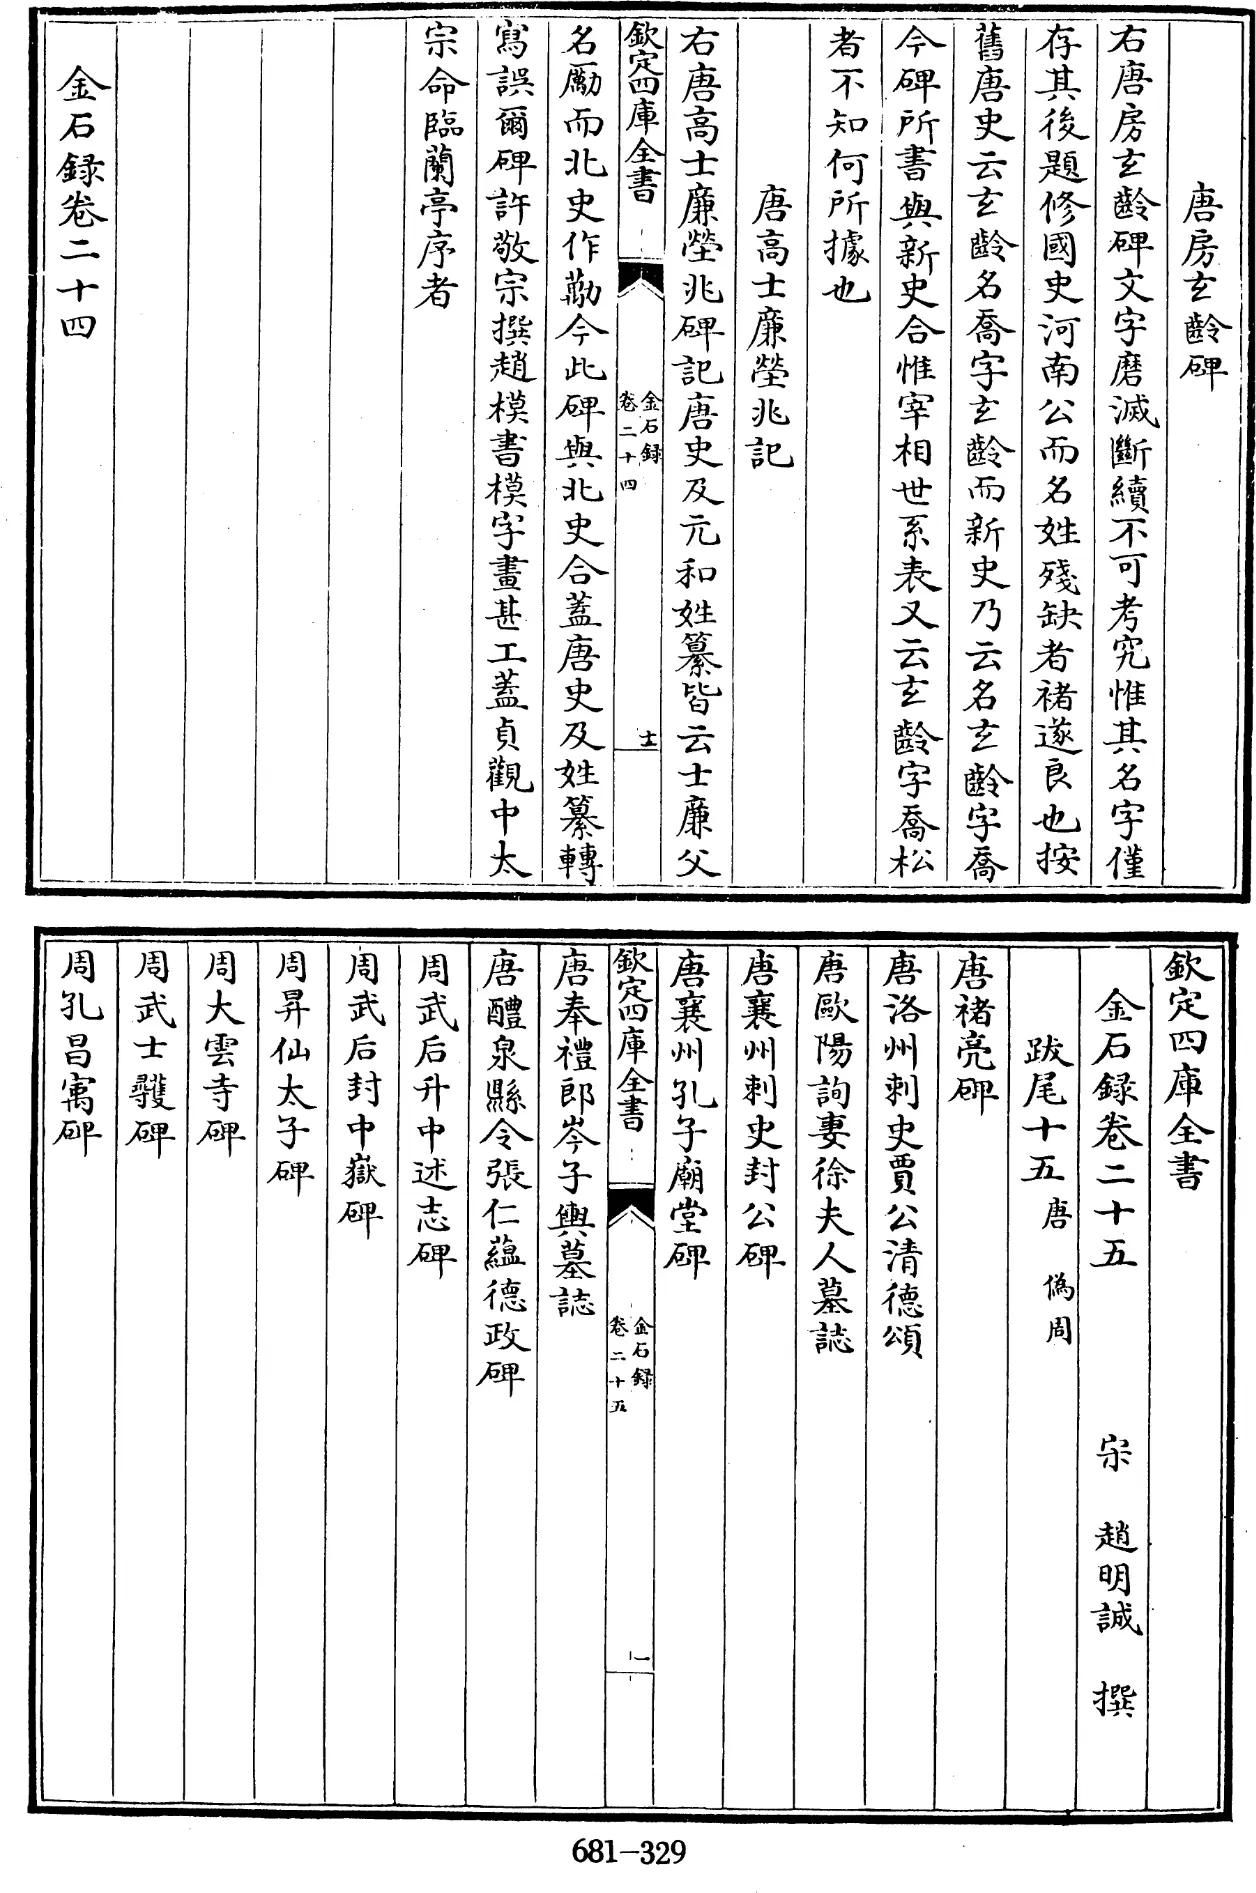 唐房玄齡碑
右唐房玄齡碑文字磨滅斷續不可考究惟其名字僅
存其後題修國史河南公而名姓殘缺者褚遂良也按
舊唐史云玄齡名喬字玄齡而新史乃云名玄齡字喬
今碑所書與新史合惟宰相世系表又云玄齡字喬松
者不知何所據也
唐高士廉塋兆記
右唐高士廉塋兆碑記唐史及元和姓纂皆云士廉父
欽定四庫全書
金石録
卷二十四
士
名勵而北史作勱今此碑與北史合蓋唐史及姓纂轉
寫誤爾碑許敬宗撰趙模書模字畫甚工蓋貞觀中太
宗命臨蘭亭序者
金石録卷二十四
欽定四庫全書
金石録卷二十五
宋 趙明誠 撰
跋尾十五 唐 偽周
唐褚亮碑
唐洛州刺史賈公清德頌
唐歐陽詢妻徐夫人墓誌
唐襄州刺史封公碑
唐襄州孔子廟堂碑
欽定四庫全書
金石録
卷二十五
一
唐奉禮郎岑子輿墓誌
唐醴泉縣令張仁蘊德政碑
周武后升中述志碑
周武后封中嶽碑
周昇仙太子碑
周大雲寺碑
周武士彠碑
周孔昌寓碑
681-329